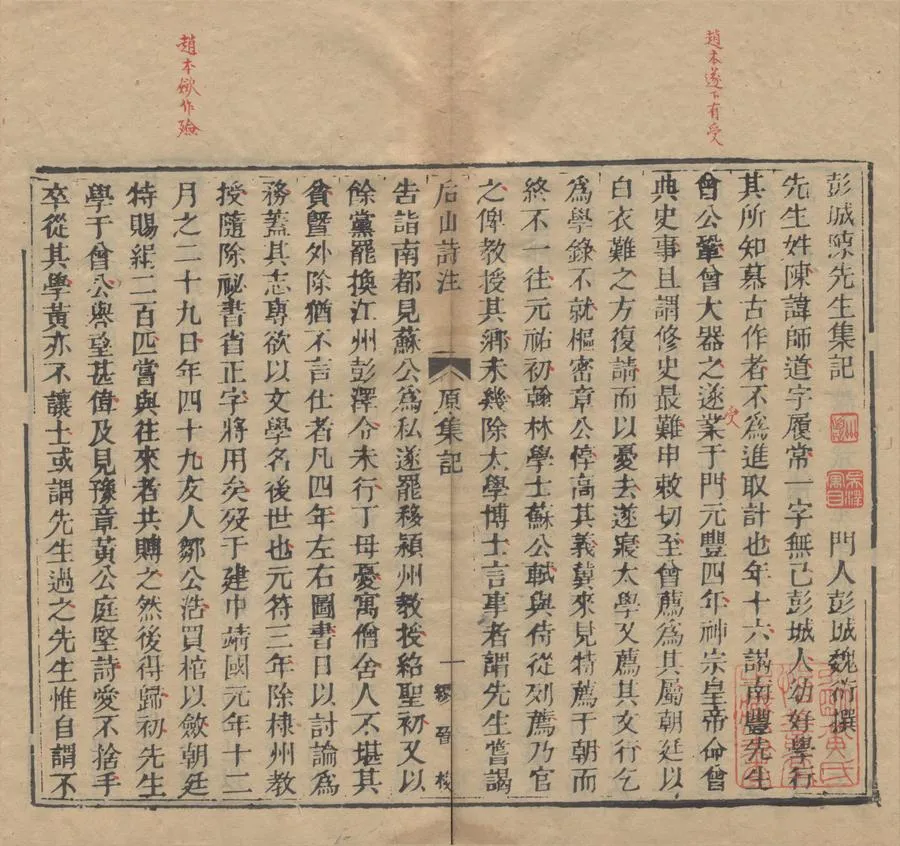 趙本遂下有受
趙本斂作殮
彭城陳先生集記
門人彭城魏衍撰
先生姓陳諱師道字履常一字無己彭城人幼好學行
其所知慕古作者不爲進取計也年十六謁南豐先生
曾公鞏曾大器之遂業于門元豐四年神宗皇帝命曾
受
典史事且謂修史最難申敕切至曾薦爲其屬朝廷以
白衣難之方復請而以憂去遂寢太學又薦其文行乞
爲學錄不就樞密章公惇高其義冀來見特薦于朝而
終不一往元祐初翰林學士蘇公軾與侍從列薦乃官
之俾教授其鄉未幾除太學博士言事者謂先生嘗謁
后山詩注
原集記
一
繆晉校
告詣南都見蘇公爲私遂罷移潁州教授紹聖初又以
餘黨罷換江州彭澤令未行丁母憂寓僧舍人不堪其
貧曁外除猶不言仕者凡四年左右圖書日以討論爲
務蓋其志專欲以文學名後世也元符三年除棣州教
授隨除祕書省正字將用矣歿于建中靖國元年十二
月之二十九日年四十九友人鄒公浩買棺以斂朝廷
特賜絹二百匹嘗與往來者共賻之然後得歸初先生
學于曾公譽望甚偉及見豫章黃公庭堅詩愛不捨手
卒從其學黃亦不讓士或謂先生過之先生惟自謂不